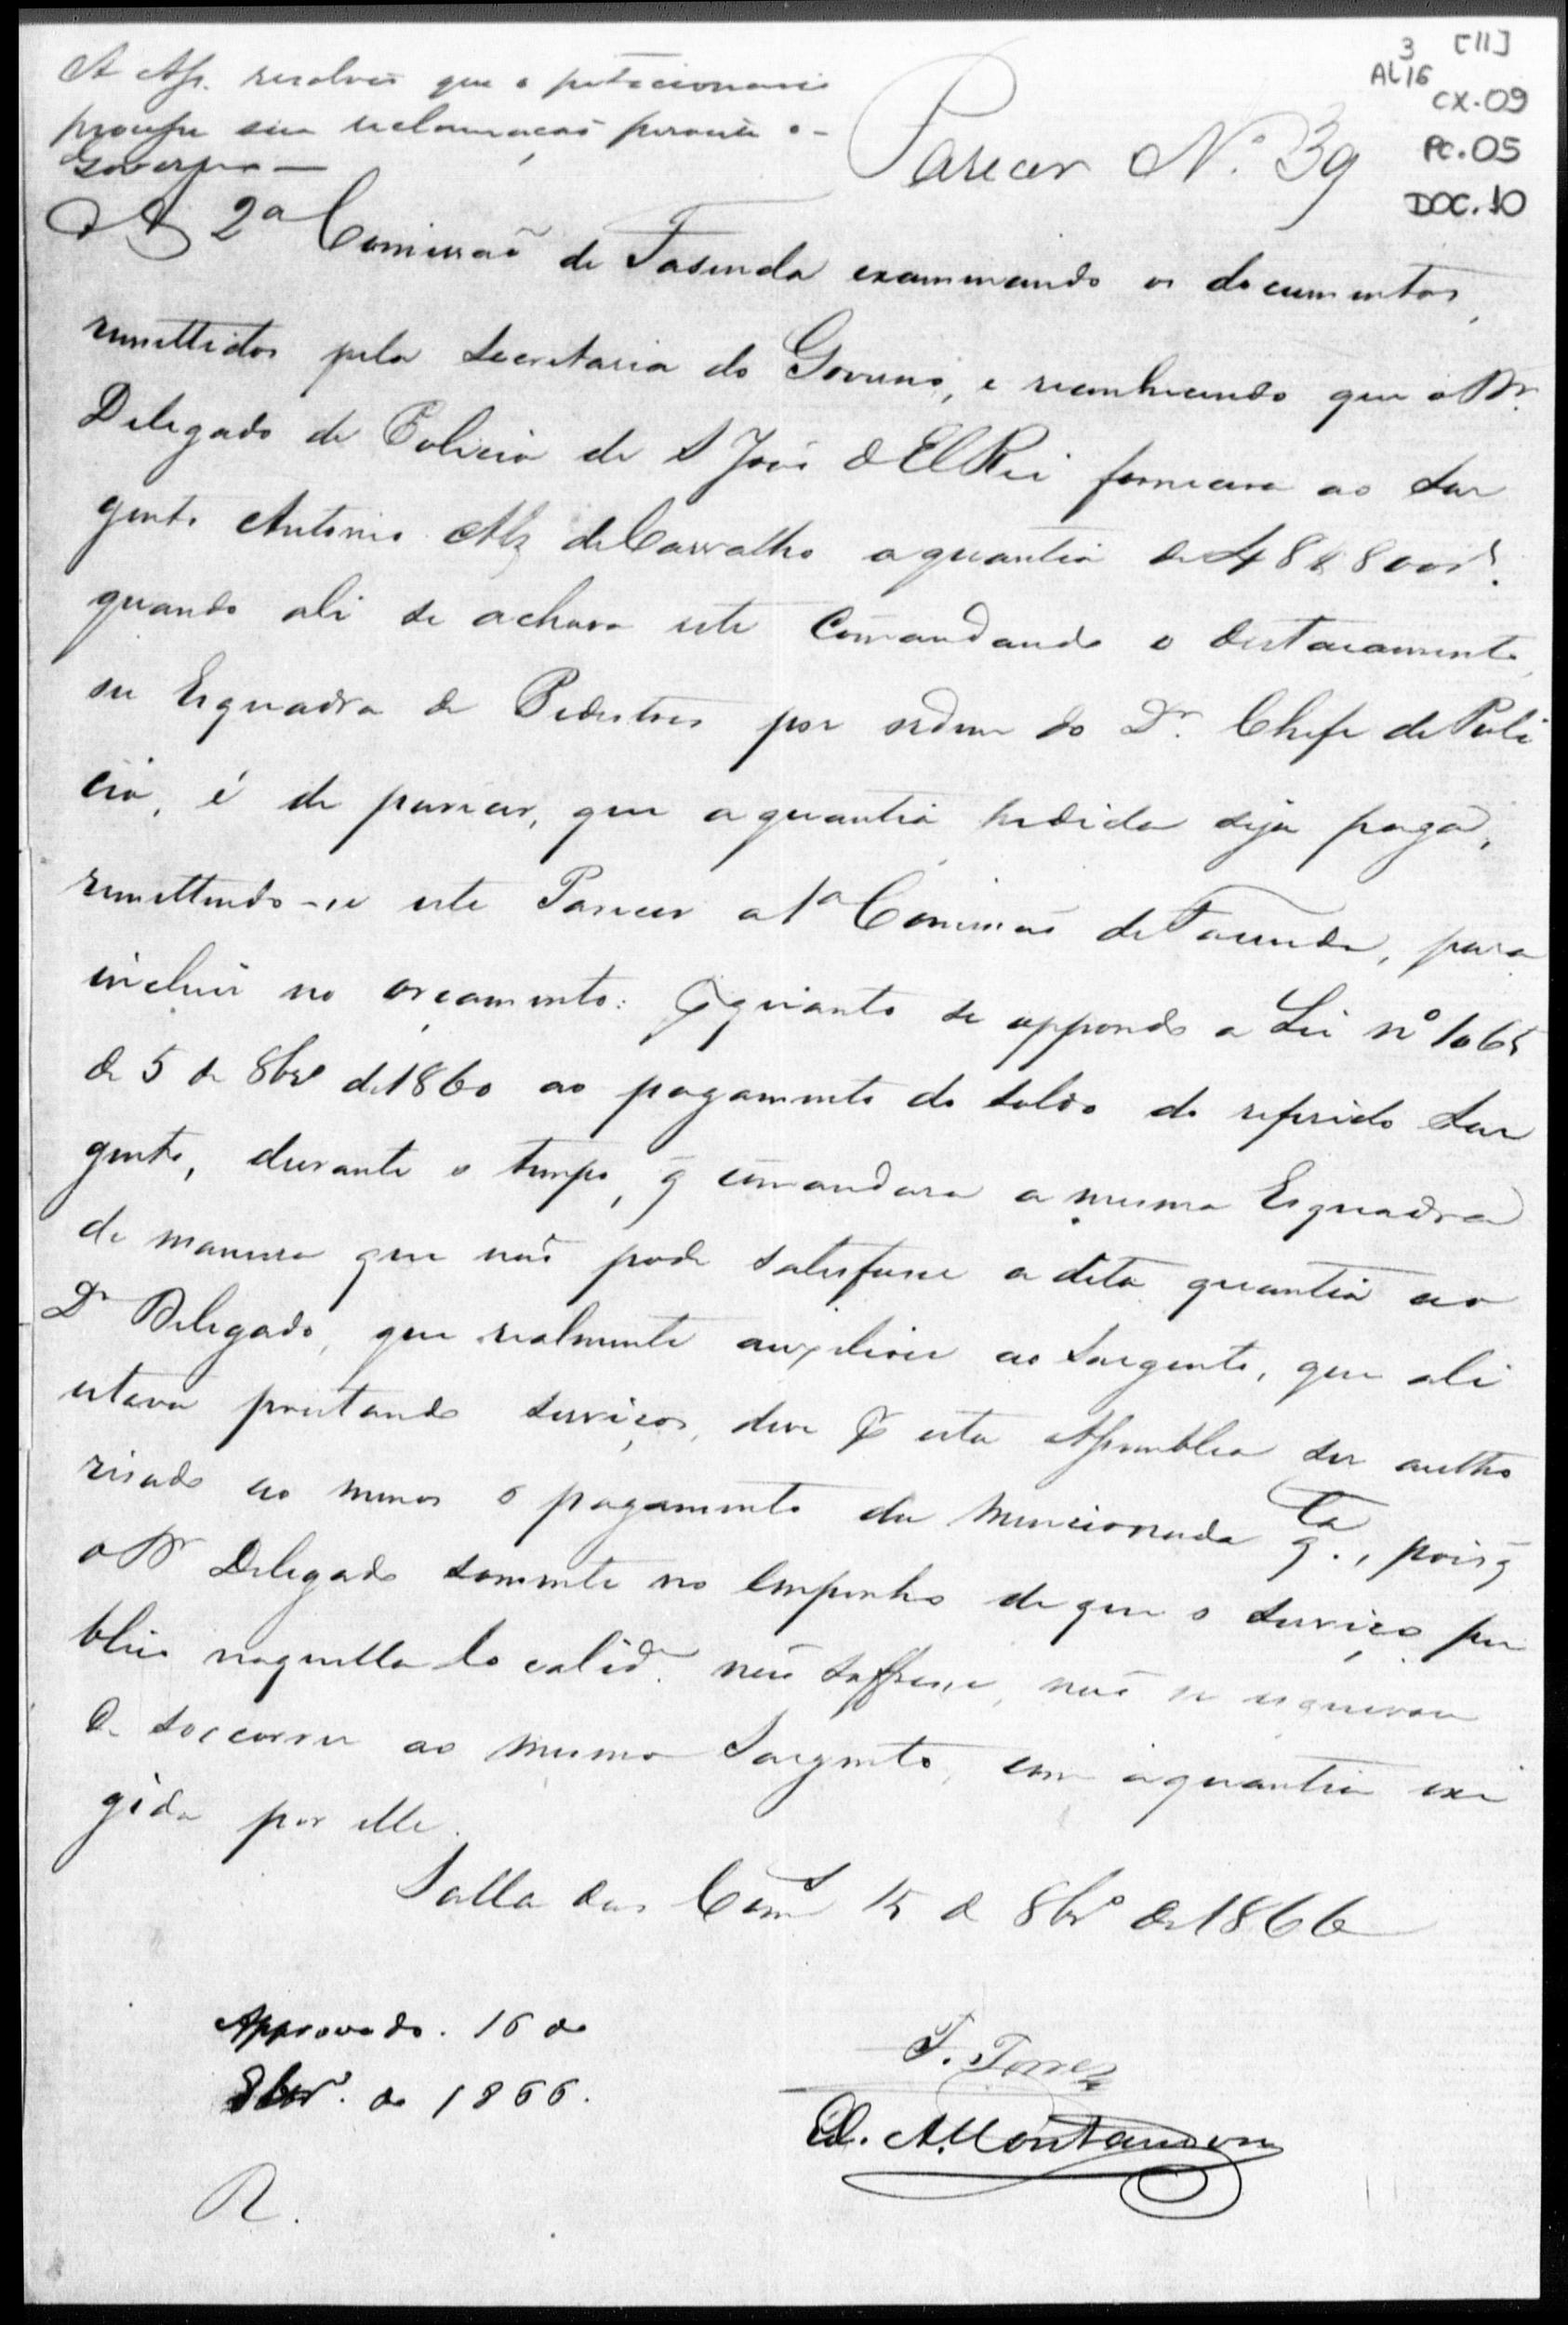 3 [11]
AL16
CX-09
PC.05
DOC.10
A Ass. resolveo que o peticionario
 sua reclamação perante o
Governo —
Parecer N.º 39
A 2ª Comissaõ de Fasenda examinando os documentos,
remettidos pela Secretaria do Governo, e reconhecendo que o Dr.
Delegado de Policia de S Joaõ d ElRei fornecera ao Sar
gento Antonio Alz de Carvalho a quantia de 48$800rs.
quando ali se achava este Comandando o destacamento,
ou Esquadra de Pedestres por ordem do Dr. Chefe de Poli
cia, é de parecer, que a quantia pedida seja paga,
remettendo-se este Parecer a 1ª Comissaõ de Fasenda, para
incluir no orçamento: Pquanto se oppondo a Lei nº 1065
de 5 de 8bro de 1860 ao pagamento do soldo do referido Sar
gento, durante o tempo, q̃ comandara a mesma Esquadra
de maneira que naõ pode satisfaser a dita quantia ao
Dr Delegado, que realmente auxiliou ao Sargento, que ali
estava prestando serviços, deve p esta Assemblea ser autho
risado ao menos o pagamento da mencionada q.ta, pois q̃
o Dr Delegado somente no empenho de que o serviço pu
blico naquella localide. naõ soffresse, naõ se esquivou
de soccorrer ao mesmo Sargento, com a quantia exi
gida por elle.
Salla das Coms 15 de 8bro de 1866
Approvado. 16 de
8bro. de 1866.
R.
F. Torres
Ed. A. Montandon